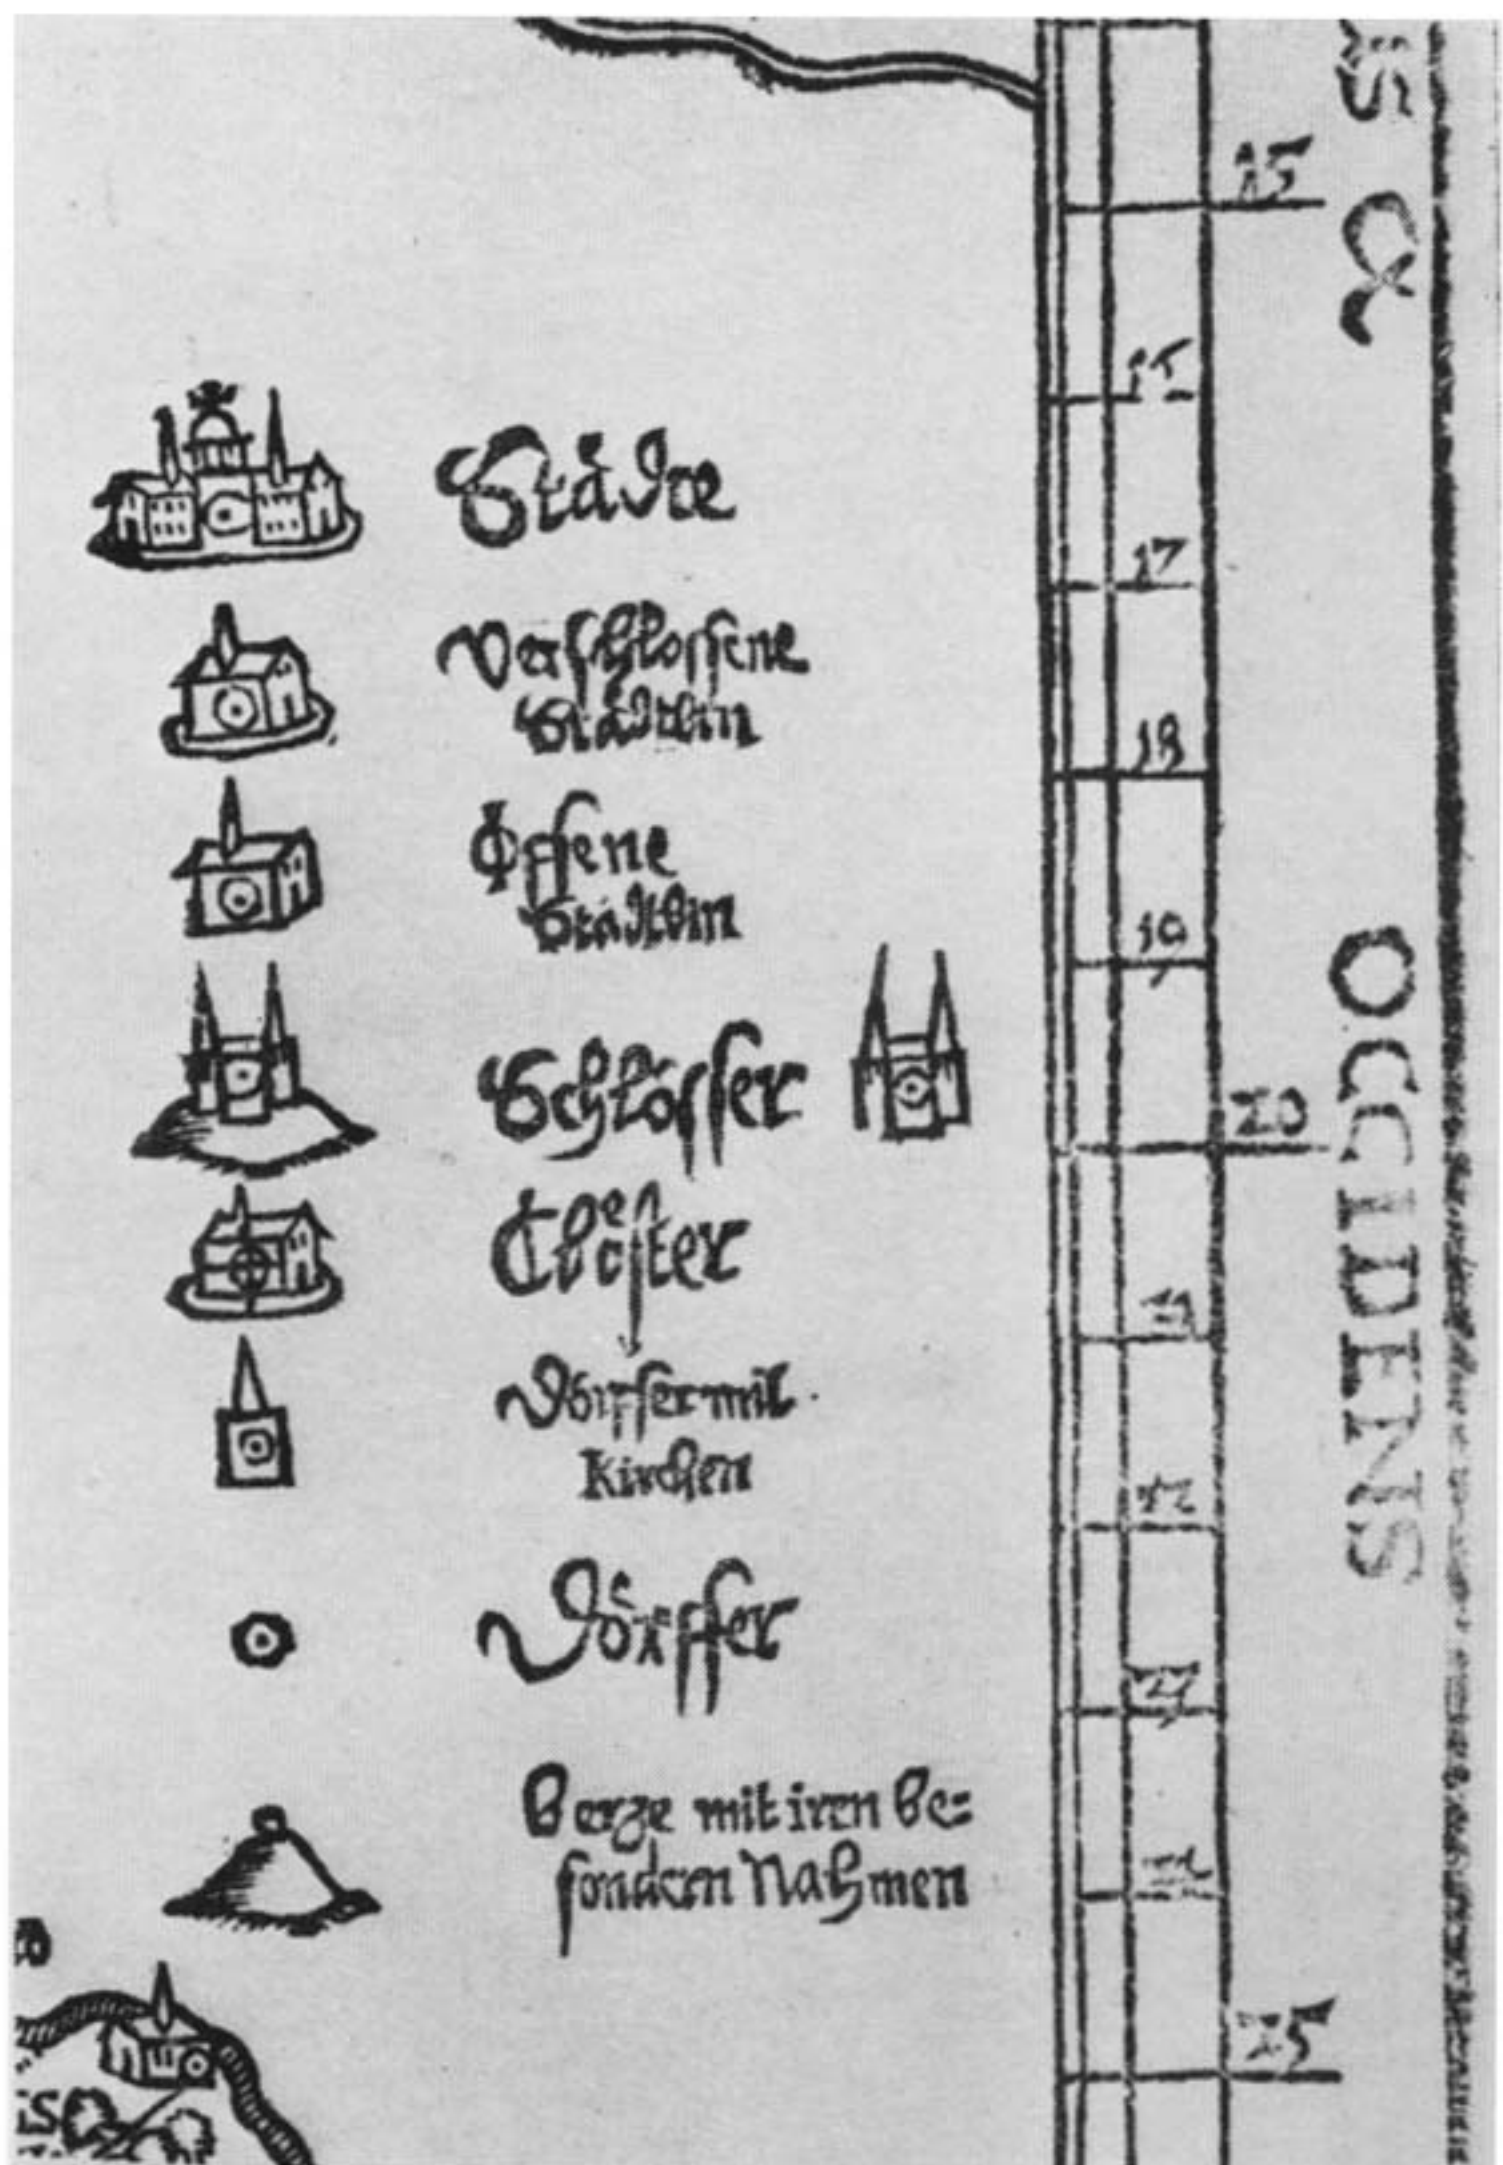 Städte
Verschlossene
Städtlin
Offene
Städtlin
Schlösser
Clöster
Dörffer mit
Kirchen
Dörffer
Berge mit iren Be=
sondern Nahmen
15
17
18
19
20
25
OCCIDENS